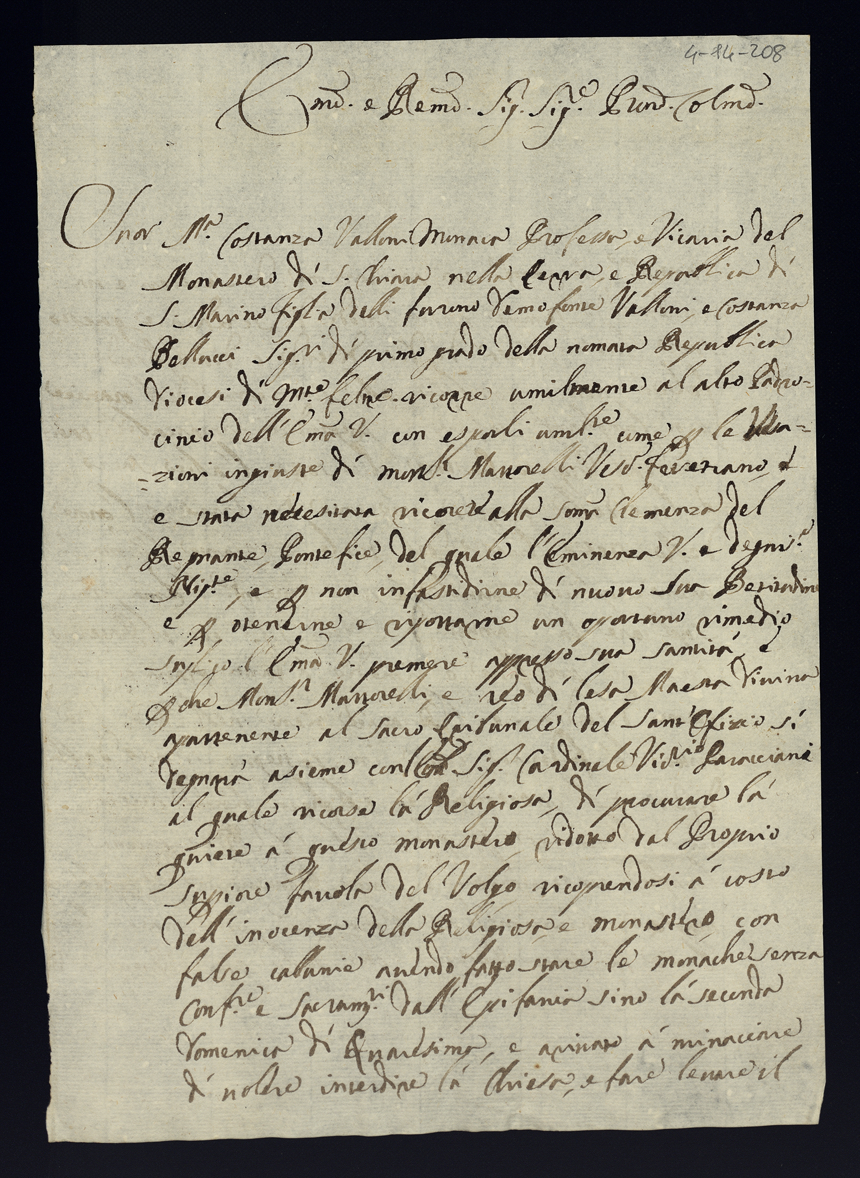 4-14-208
Emo. e Remo. Sig. Sig.e Pron. Colmo.
Suor Ma. Costanza Valloni Monaca Professa, e Vicaria del
Monastero di S. Chiara nella Terra, e Republica di
S. Marino figlia delli furono Demofonte Valloni, e Costanza
Bellucci Sig.ri di primo grado della nomata Republica
Diocesi di Mte. felt.e ricorre umilmente al alto Padro=
cinio dell'Ema V. con esporli umil.te come p le
=zioni ingiuste di mons.r Martorelli Vesc.o feretrano, é
e stata necesitata ricorere alla Soma Clemenza del
Regnante Pontefice, del quale l'Eminenza V. e degni.o
Nip.te, e p non infastidirne di nuovo Sua Beatitudine
e p otenerne e riportarne un oportuno rimedio
suplico l'Ema V. premere appresso sua santità, e
p che Mons.r Martorelli, e reo di lesa Maestà Divina
apartenente al Sacro Tribunale del Sant'Ofizio si
degnarà asieme con Sig. Cardinale Vic.rio Paracciani
al quale ricorse la Religiosa, di procurare la
quiete á questo monastero, ridotto dal Proprio
Supiore favola del Volgo ricoprendosi á costo
dell'inocenza della Religiosa, e monastero con
false callunie avendo fatto stare le monache senza
Conf.re e Sacram.ti dall'Epifania sino la seconda
domenica di Quaresima, e arivato á minaciare
di volere interdire la Chiesa, e fare levare il